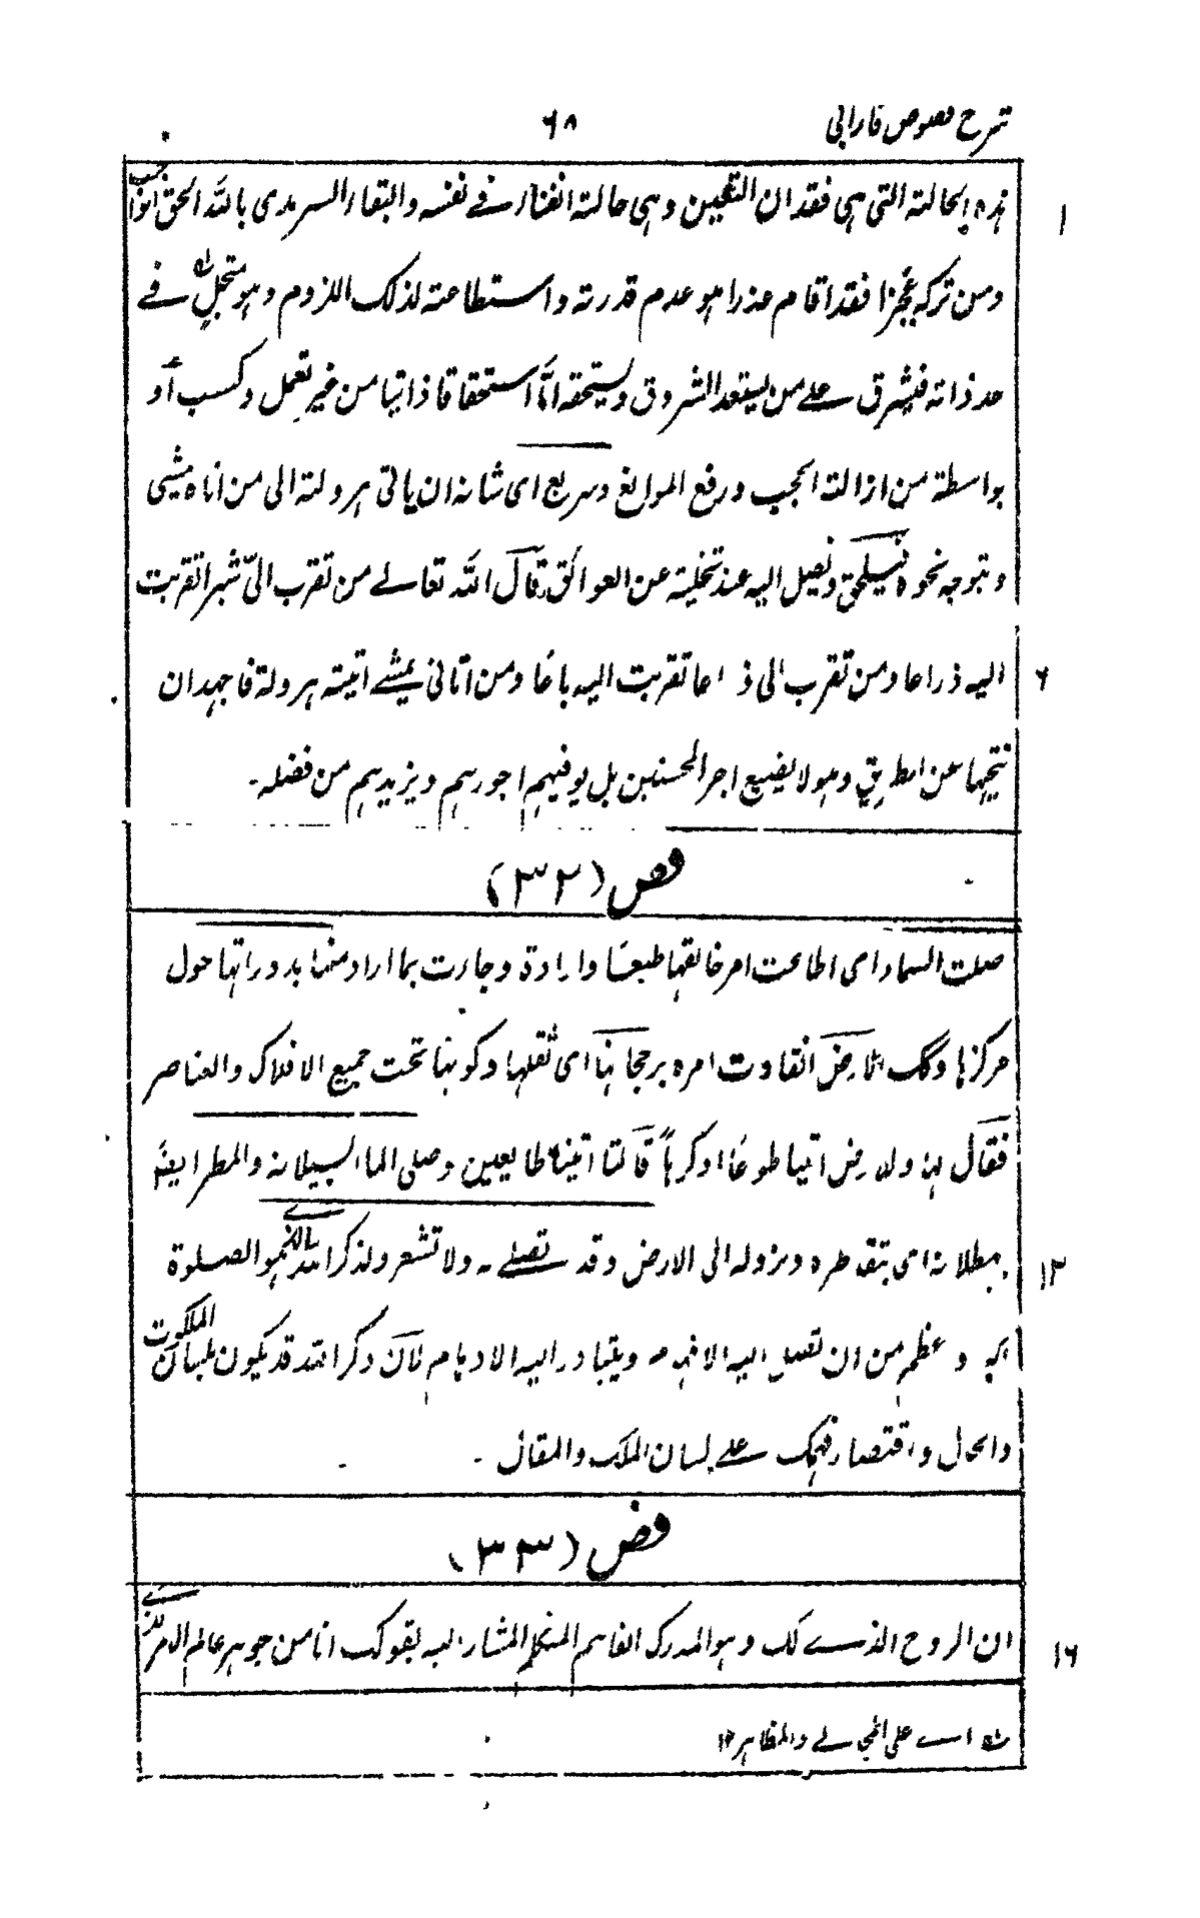 شرح فصوص فارابی ٦٨
١ هذه الحالة التي هي فقدان التعين وهي حالة الفناء في نفسه والبقاء السرمدي بالله الحق الواجب
ومن تركه عجزا فقد اقام عذرا هو عدم قدرته واستطاعته لذلك اللزوم وهو متجلٍ له في
حد ذاته فيشرق على من يستعد الشروق ويستحقه اما استحقاقا ذاتيا من غير تعمل وكسب او
بواسطة من ازالة الحجب ورفع الموانع وسريع اى شانه ان ياتى هرولة الى من اتاه يمشى
ويتوجه نحوه فسيلحق ونصل اليه عند تخلية عن العوائق قال الله تعالى من تقرب الىّ شبرا تقربت
٦ اليه ذراعا ومن تقرب الى ذ اعا تقربت اليه باعا ومن اتانى يمشى اتيته هرولة فاجهد ان
تنحيها عن الطريق وهو لا يضيع اجر المحسنين بل يوفيهم اجورهم ويزيدهم من فضله۔
فص (٣٢)
صلت السماء اى اطاعت امر خالقها طبعا وارادة وجاءت بما اراد منها بدورانها حول
مركزها وكك الارض انقادت امره برجحانها اى ثقلها وكونها تحت جميع الافلاك والعناصر
فقال لها وللارض اتيا طوعا او كرها قالتا اتينا طايعين وصلى الماء بسيلانه والمطر ايضا
١٢ بهطلانه اى بتقاطره ونزوله الى الارض وقد تصلى له ولا تشعر ولذكر الله بالضم هو الصلوة
اكبر و عظم من ان تصل اليه الافهام ويتبادر اليه الاوهام لان ذكر الله قد يكون بلسان الملكوت
والحال واقتصار فهمك على لسان الملك والمقال ۔
فص (٣٣)
١٦ ان الروح الذى لك وهو المدرك الفاهم المتكلم المشار اليه بقولك انا من جوهر عالم الامر
له اى على المجالى والمظاهر ١٢